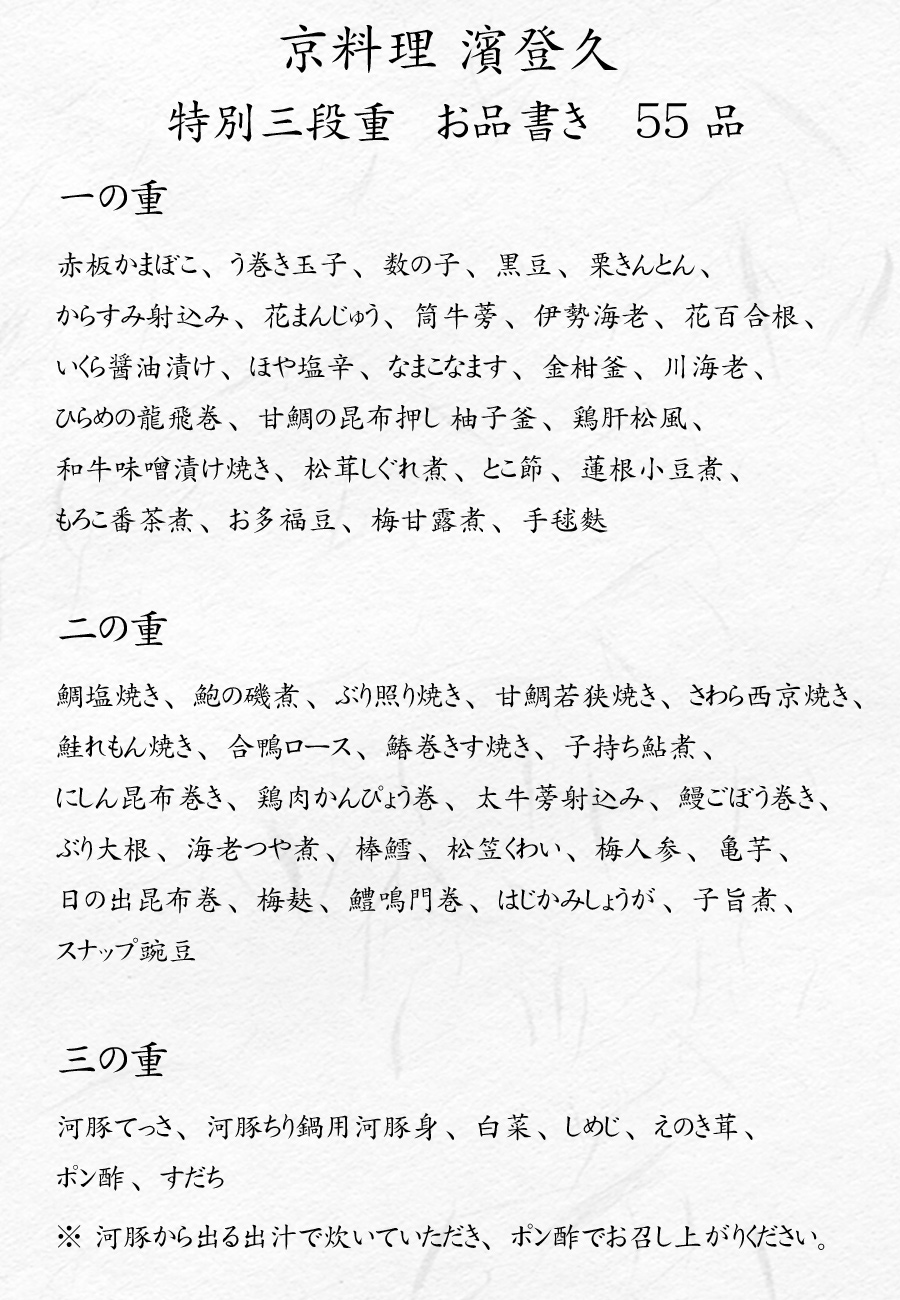 京料理 濱登久
特別三段重 お品書き 55品
一の重
赤板かまぼこ、う巻き玉子、数の子、黒豆、栗きんとん、
からすみ射込み、花まんじゅう、筒牛蒡、伊勢海老、花百合根、
いくら醤油漬け、ほや塩辛、なまこなます、金柑釜、川海老、
ひらめの龍飛巻、甘鯛の昆布押し 柚子釜、鶏肝松風、
和牛味噌漬け焼き、松茸しぐれ煮、とこ節、蓮根小豆煮、
もろこ番茶煮、お多福豆、梅甘露煮、手毬麩
二の重
鯛塩焼き、鮑の磯煮、ぶり照り焼き、甘鯛若狭焼き、さわら西京焼き、
鮭れもん焼き、合鴨ロース、鰆巻きす焼き、子持ち鮎煮、
にしん昆布巻き、鶏肉かんぴょう巻、太牛蒡射込み、鰻ごぼう巻き、
ぶり大根、海老つや煮、棒鱈、松笠くわい、梅人参、亀芋、
日の出昆布巻、梅麸、鱧鳴門巻、はじかみしょうが、子旨煮、
スナップ豌豆
三の重
河豚てっさ、河豚ちり鍋用河豚身、白菜、しめじ、えのき茸、
ポン酢、すだち
※ 河豚から出る出汁で炊いていただき、ポン酢でお召し上がりください。